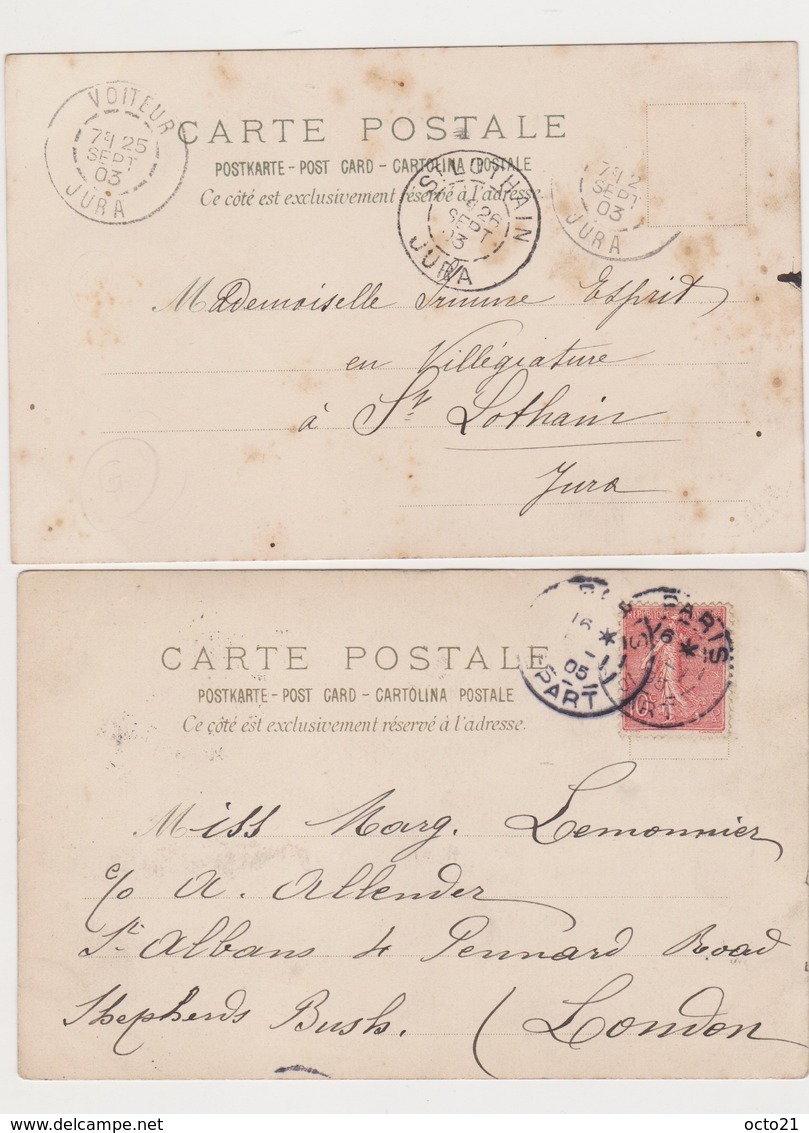 VOITEUR
7E 25
SEPT
03
JURA
CARTE POSTALE
POSTKARTE - POST CARD - CARTOLINA POSTALE
Ce côté est exclusivement réservé à l'adresse.
ST LOTHAIN
26
SEPT
03
JURA
7E 2
SEPT
03
JURA
Mademoiselle Esprit
en Villégiature
à St Lothain
Jura
CARTE POSTALE
POSTKARTE - POST CARD - CARTOLINA POSTALE
Ce côté est exclusivement réservé à l'adresse.
16
05
PART
PARIS
16
10c
Miss Marg. Lemonnier
c/o A. Allender
St Albans 4 Pennard Road
Shepherds Bush. (London
octo21